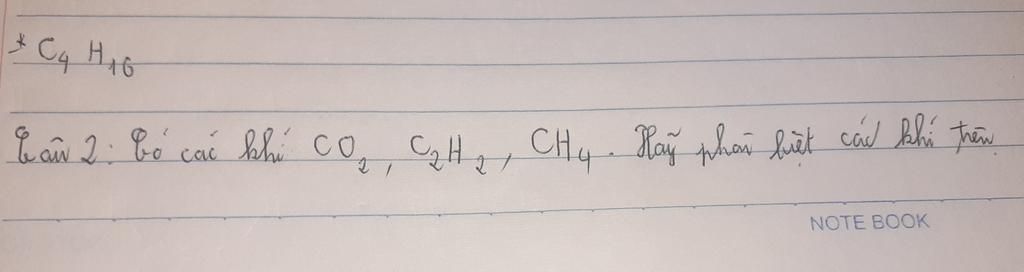 * C₄ H₁₆
Câu 2: Có các khí CO₂, C₂H₂, CH₄. Hãy phân biệt các khí trên.
NOTE BOOK